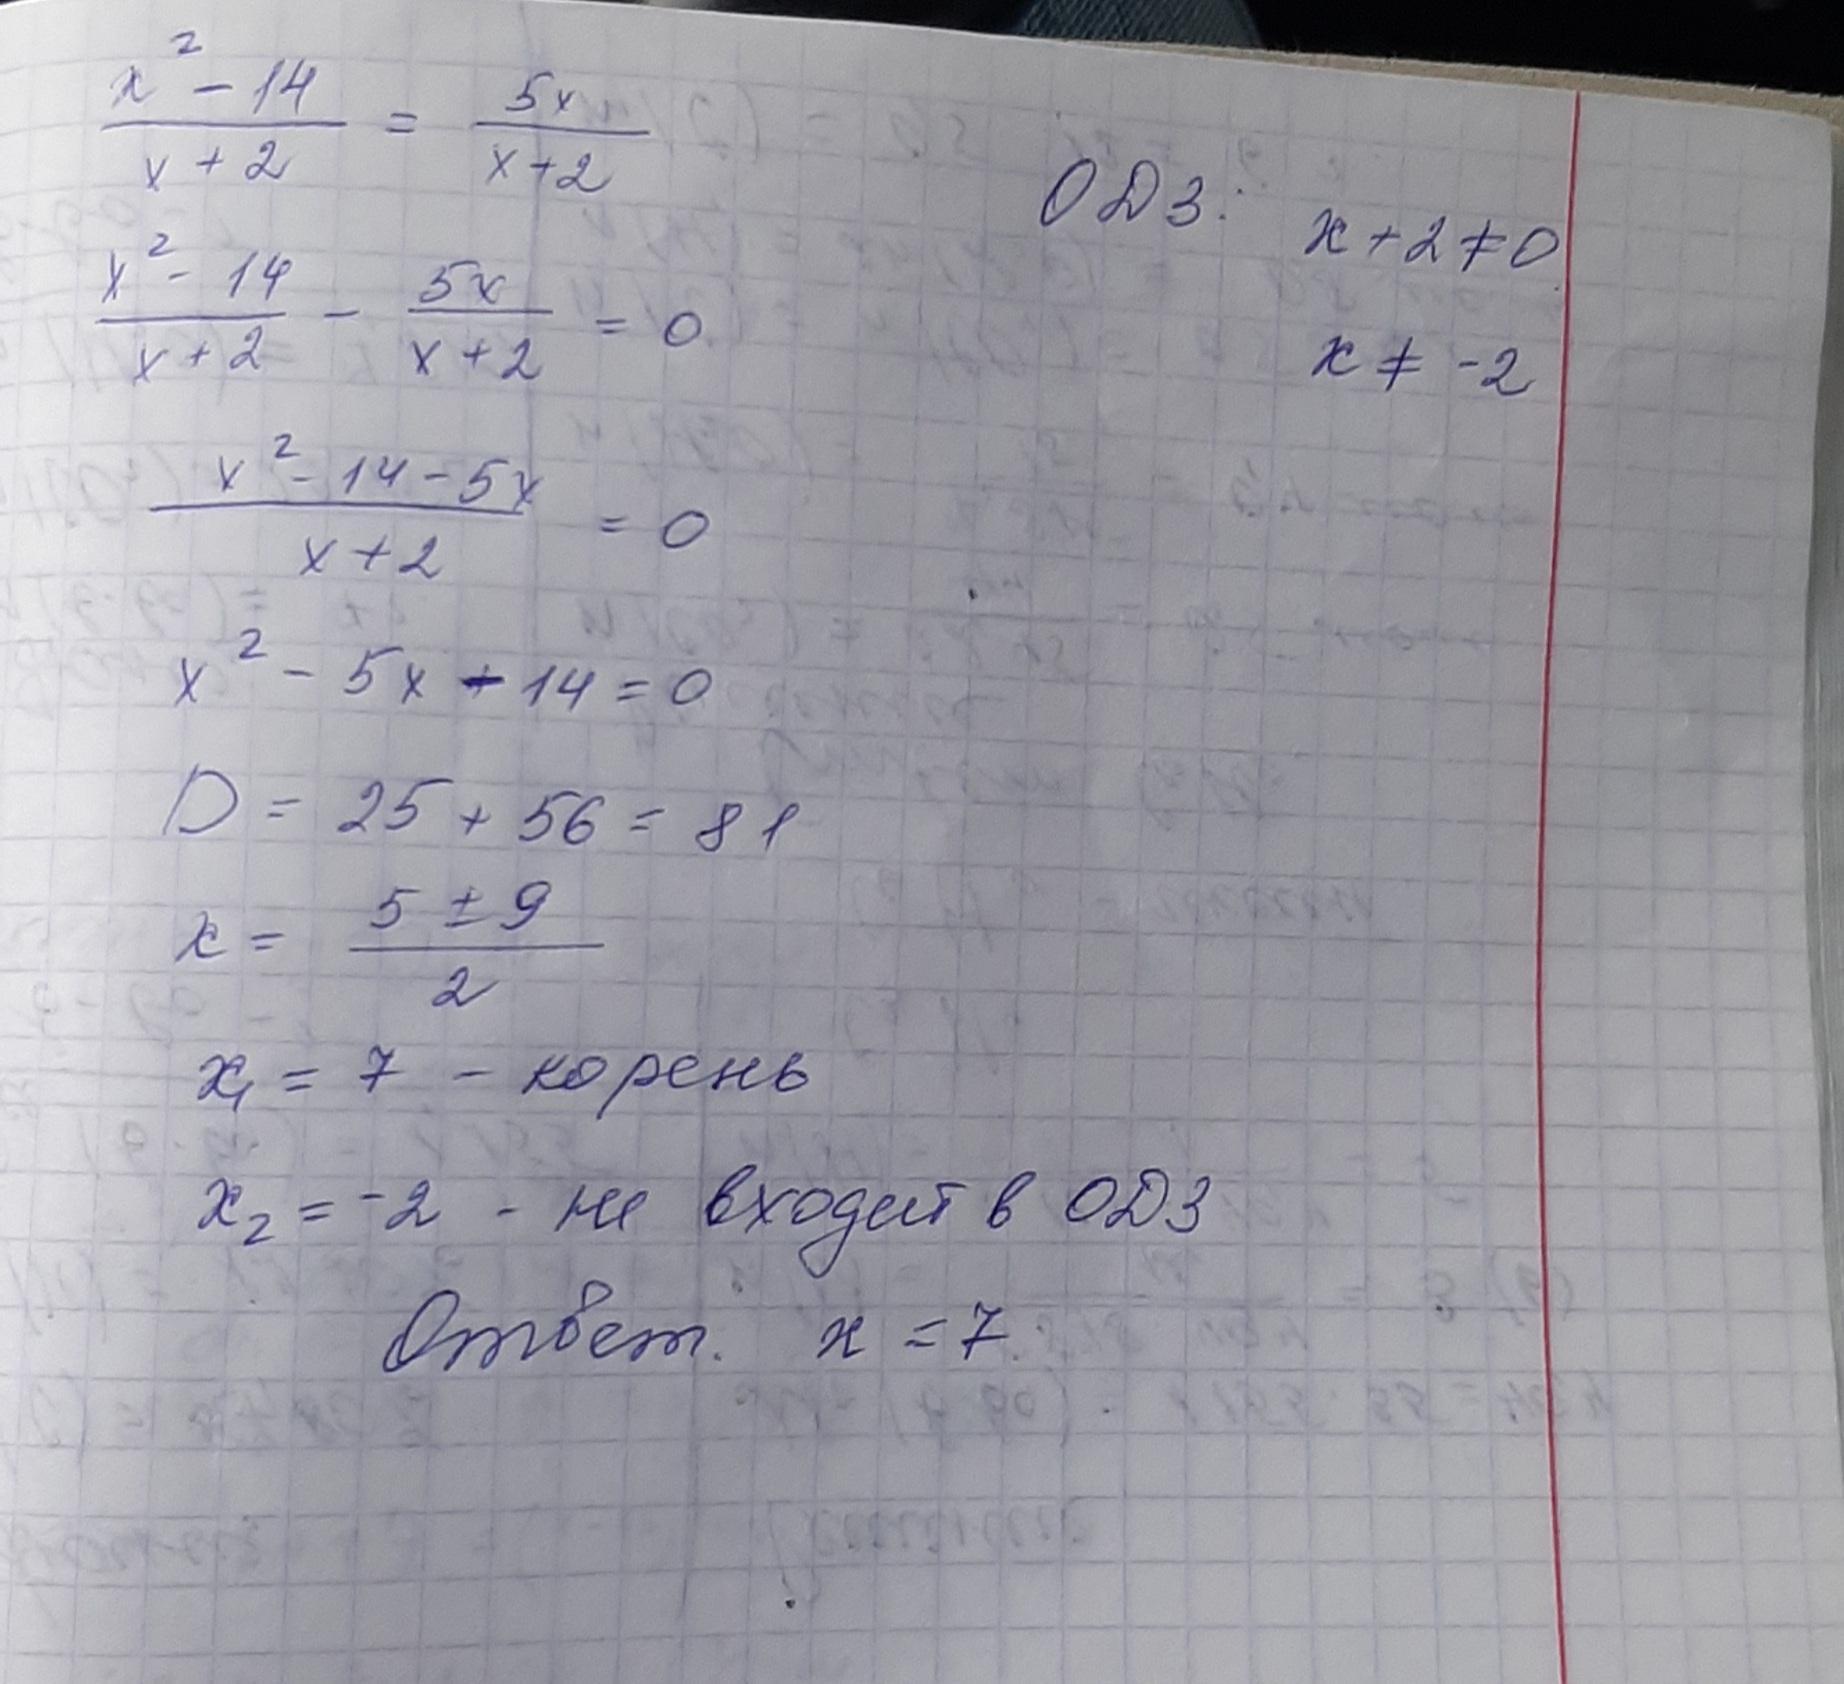 x² - 14 / x + 2 = 5x / x + 2
ОДЗ: x + 2 ≠ 0
x ≠ -2
x² - 14 / x + 2 - 5x / x + 2 = 0
x² - 14 - 5x / x + 2 = 0
x² - 5x - 14 = 0
D = 25 + 56 = 81
x = 5 ± 9 / 2
x₁ = 7 - корень
x₂ = -2 - не входит в ОДЗ
Ответ. x = 7